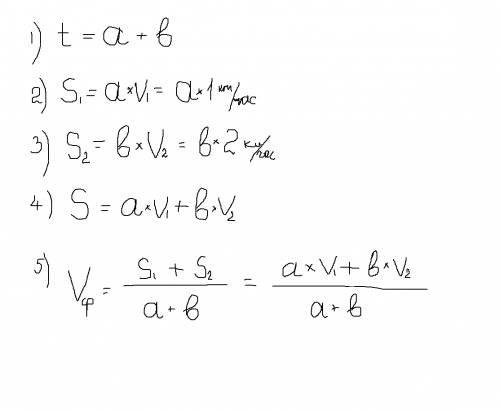 1) t = a + в
2) S₁ = a × V₁ = a × 1 км/час
3) S₂ = в × V₂ = в × 2 км/час
4) S = a × V₁ + в × V₂
5) Vφ = (S₁ + S₂) / (a + в) = (a × V₁ + в × V₂) / (a + в)